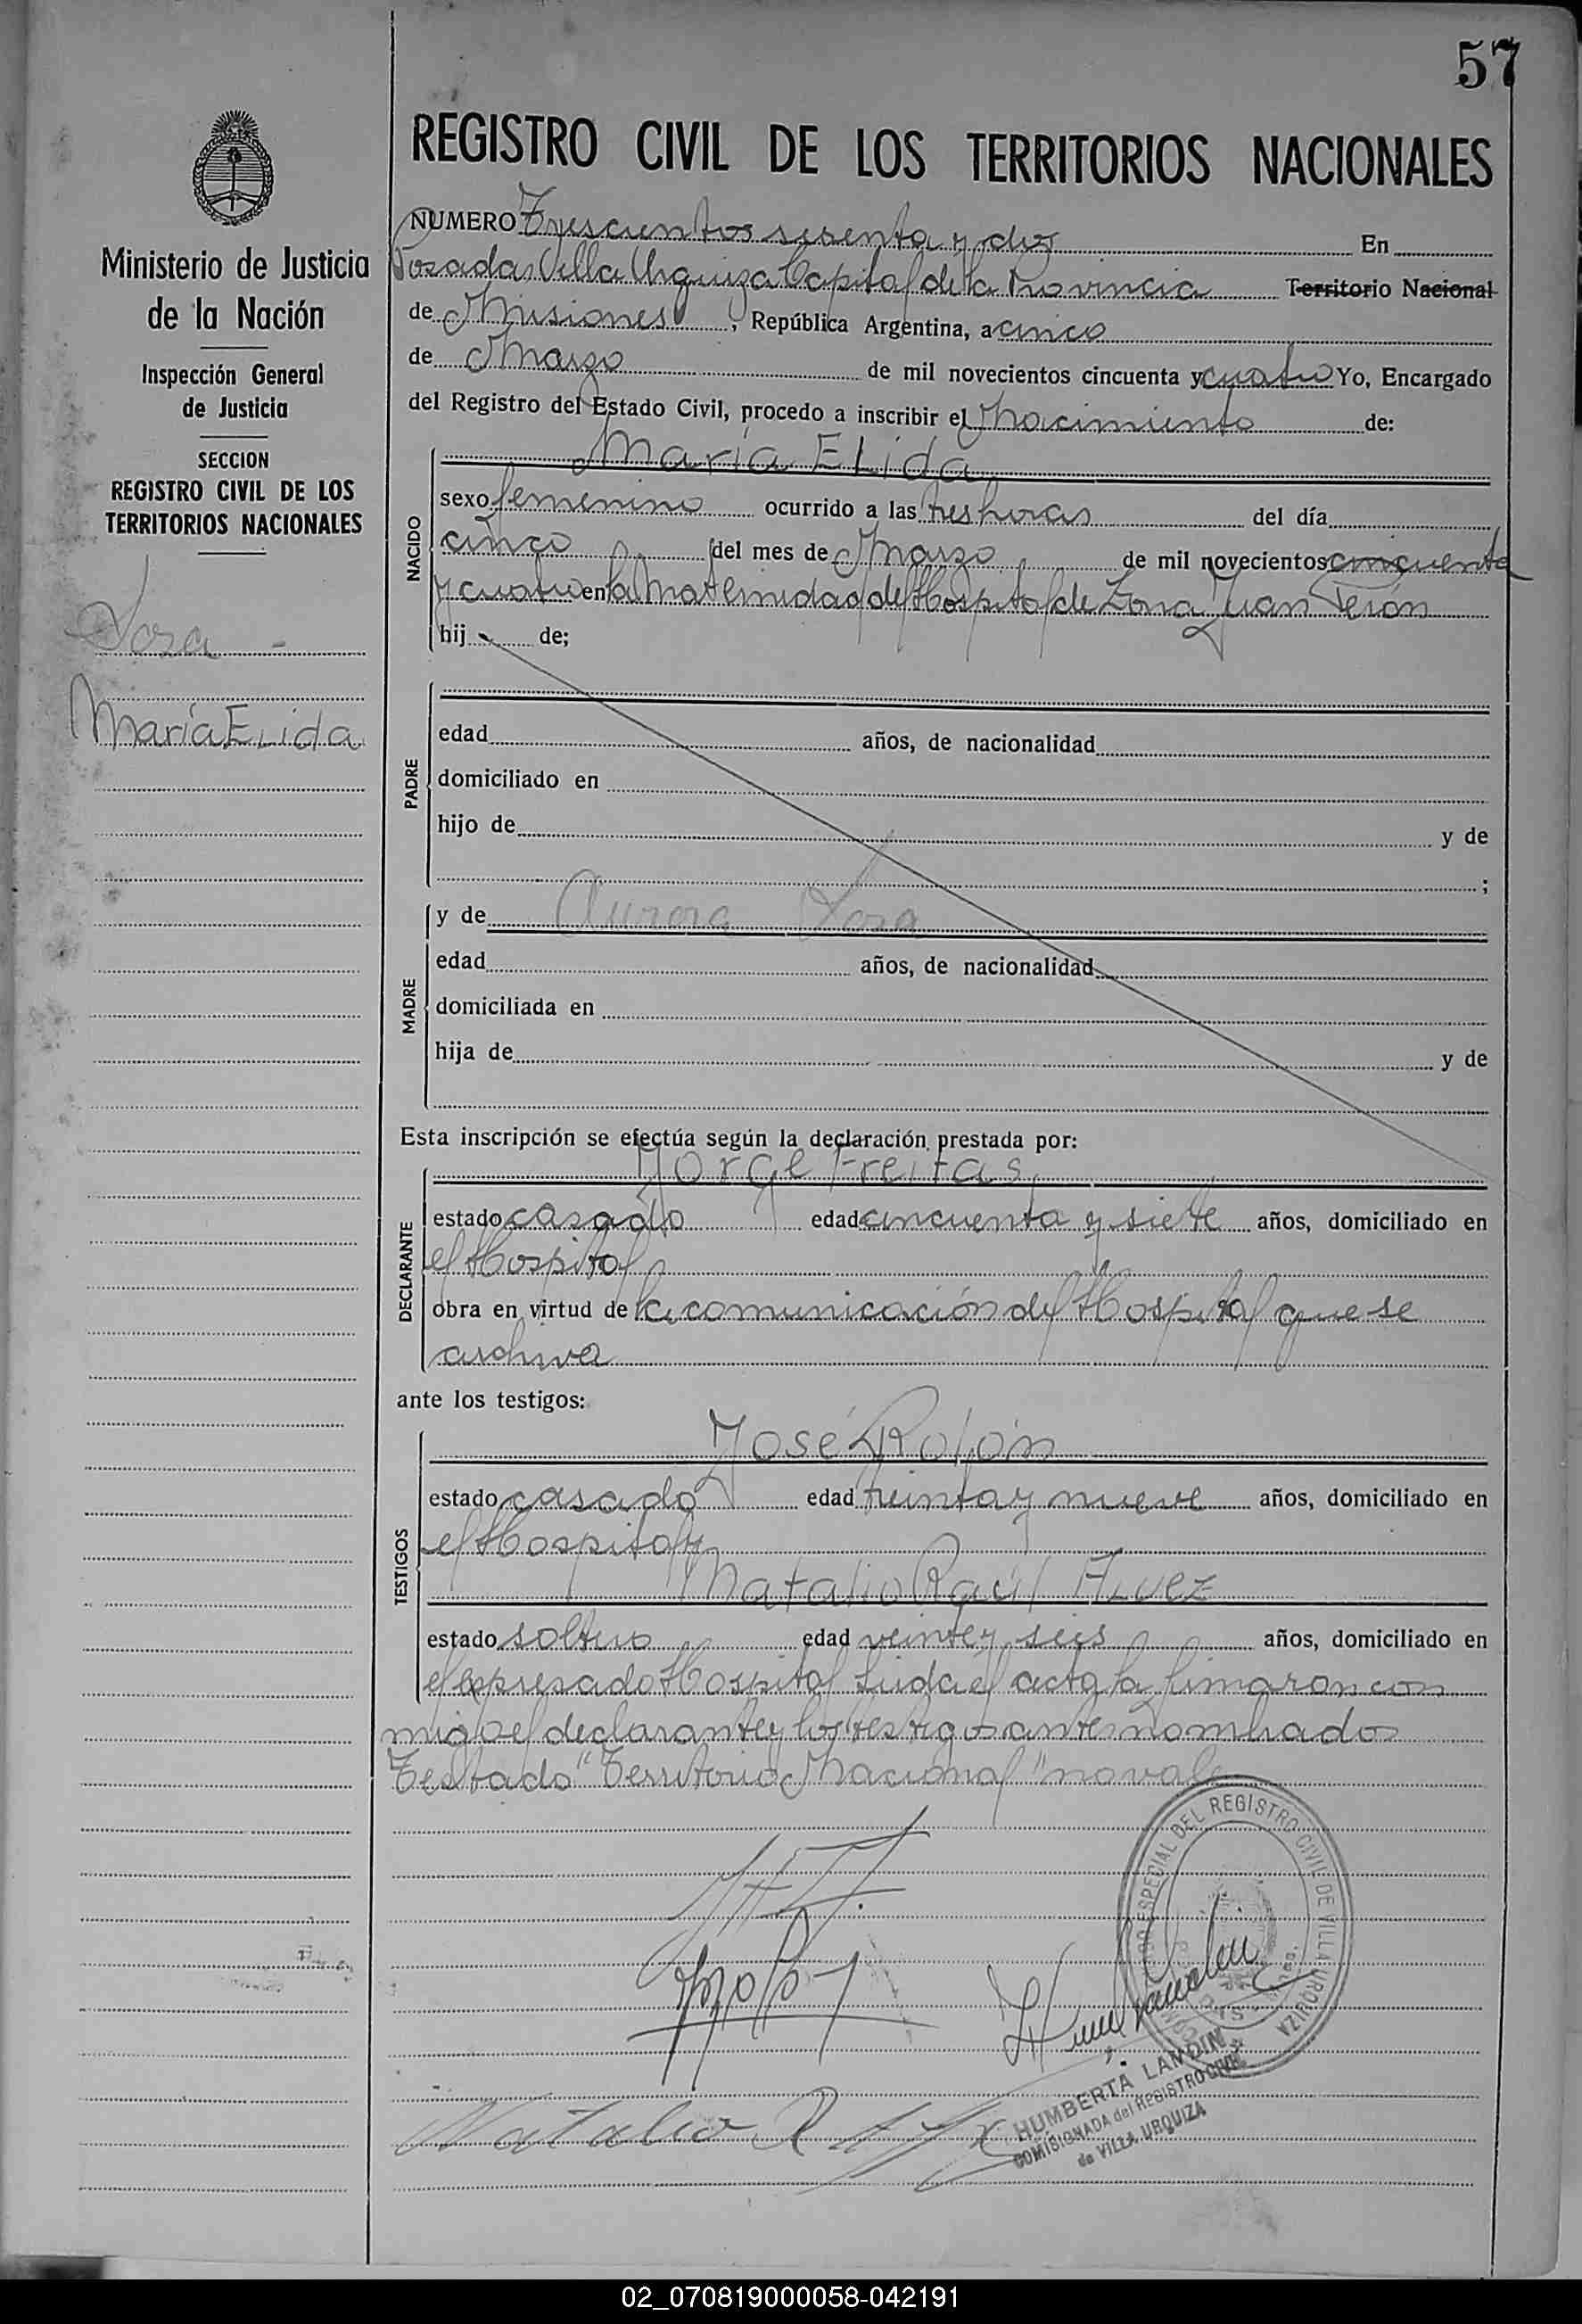 57
REGISTRO CIVIL DE LOS TERRITORIOS NACIONALES
Ministerio de Justicia
de la Nación
Inspección General
de Justicia
SECCION
REGISTRO CIVIL DE LOS
TERRITORIOS NACIONALES
Sosa -
María Elida
NUMERO Trescientos sesenta y dos En
Posadas Villa Urquiza Capital de la Provincia Territorio Nacional
de Misiones, República Argentina, a cinco
de Marzo de mil novecientos cincuenta y cuatro Yo, Encargado
del Registro del Estado Civil, procedo a inscribir el Nacimiento de:
NACIDO
María Elida
sexo femenino ocurrido a las tres horas del día
cinco del mes de Marzo de mil novecientos cincuenta
y cuatro en la Maternidad del Hospital de Zona Juan Perón
hij de;
PADRE
edad años, de nacionalidad
domiciliado en
hijo de y de
;
MADRE
y de Aurora Sosa
edad años, de nacionalidad
domiciliada en
hija de y de
Esta inscripción se efectúa según la declaración prestada por:
DECLARANTE
Jorge Freitas,
estado casado edad cincuenta y siete años, domiciliado en
el Hospital
obra en virtud de la comunicación del Hospital que se
archiva
ante los testigos:
TESTIGOS
José Rolón
estado casado edad treinta y nueve años, domiciliado en
el Hospital y
Natalio Raúl Alvez
estado soltero edad veinte y seis años, domiciliado en
el expresado Hospital Leida el acta la firmaron con
migo el declarante y los testigos antes nombrados
Testado "Territorio Nacional" no vale
Natalio R
REGISTRO ESPECIAL DEL REGISTRO CIVIL DE VILLA URQUIZA
HUMBERTA LANDIN
COMISIONADA del REGISTRO CIVIL
de VILLA URQUIZA
02_070819000058-042191